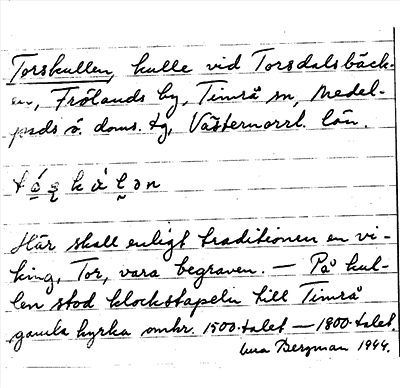 Torskullen, kulle vid Torsdalsbäck-
en, Frölands by, Timrå sn, Medel-
pads ö. doms. tg, Västernorrl. län.
Här skall enligt traditionen en vi-
king, Tor, vara begraven. — På kul-
len stod klockstapeln till Timrå
gamla kyrka omkr. 1500-talet — 1800-talet.
Bergman 1944.